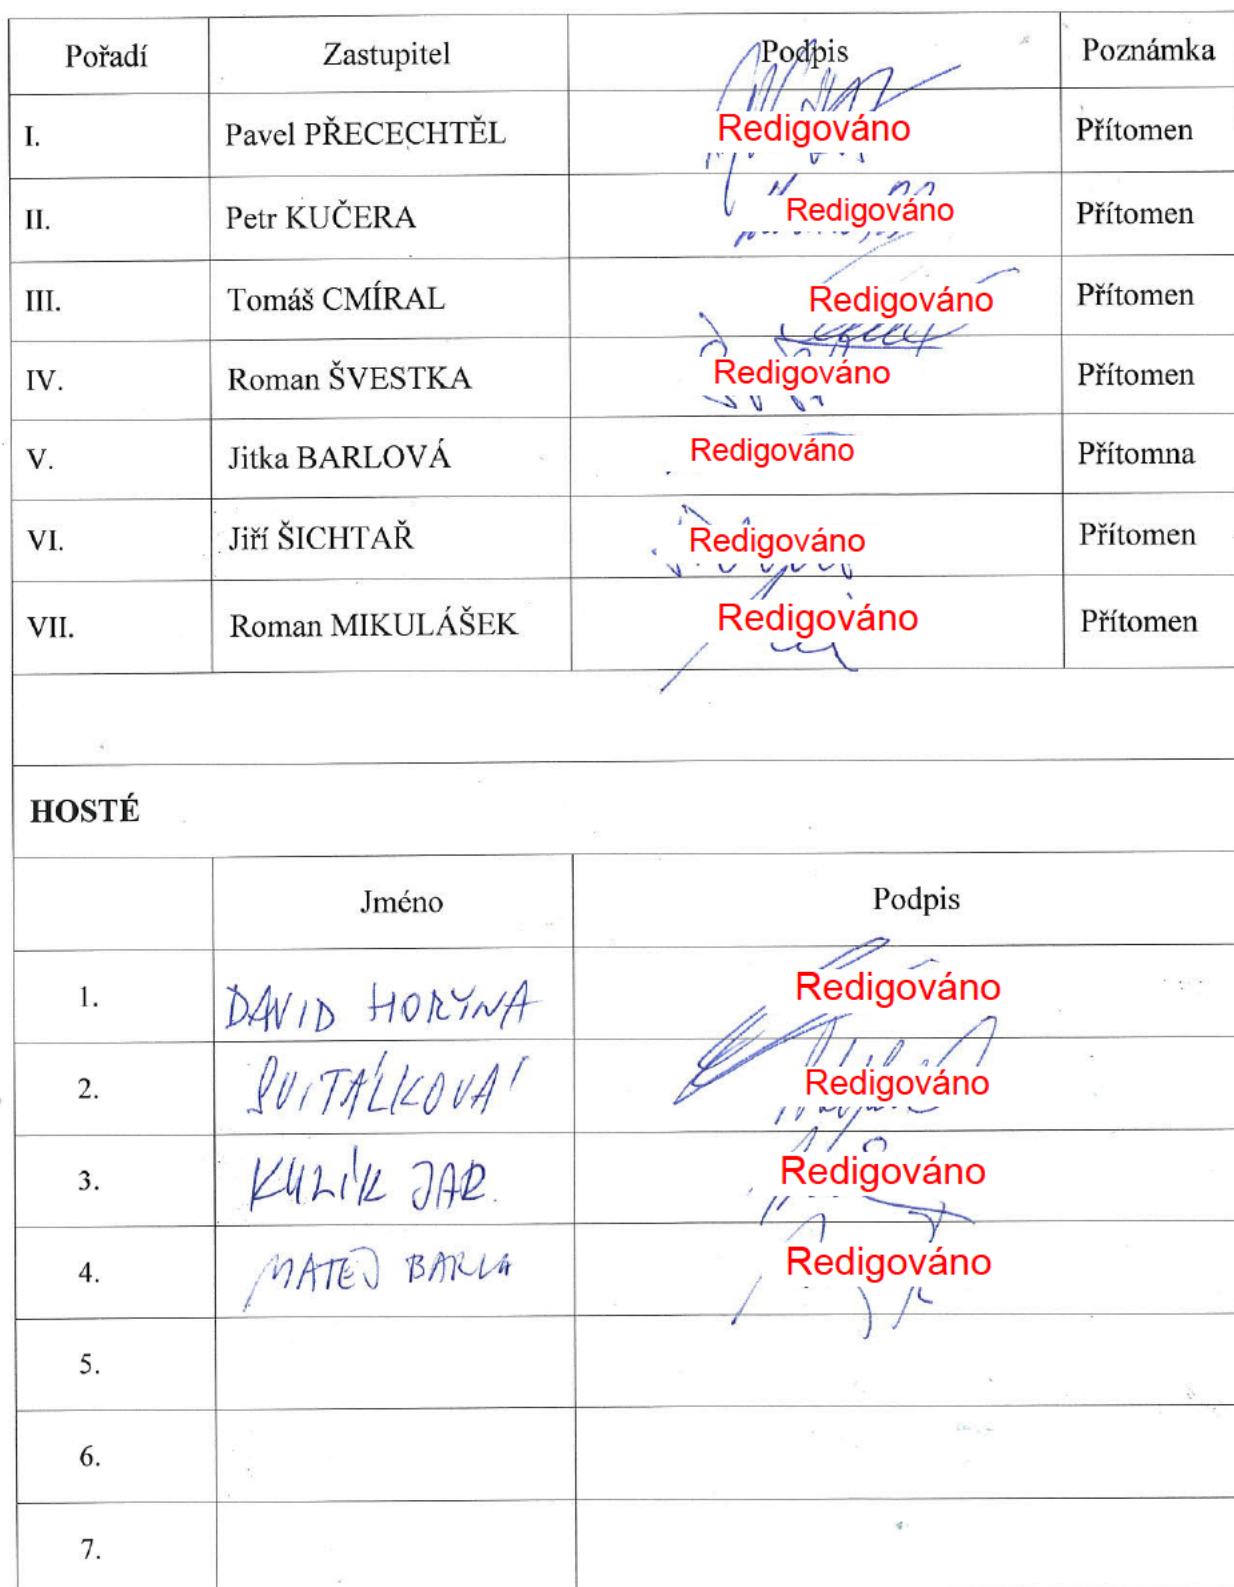 Pořadí Zastupitel Podpis Poznámka
I. Pavel PŘECECHTĚL Redigováno Přítomen
II. Petr KUČERA Redigováno Přítomen
III. Tomáš CMÍRAL Redigováno Přítomen
IV. Roman ŠVESTKA Redigováno Přítomen
V. Jitka BARLOVÁ Redigováno Přítomna
VI. Jiří ŠICHTAŘ Redigováno Přítomen
VII. Roman MIKULÁŠEK Redigováno Přítomen
HOSTÉ
Jméno Podpis
1. DAVID HORYNA Redigováno
2. SVITÁLKOVÁ Redigováno
3. KULÍK JAR. Redigováno
4. MATEJ BARLA Redigováno
5.
6.
7.